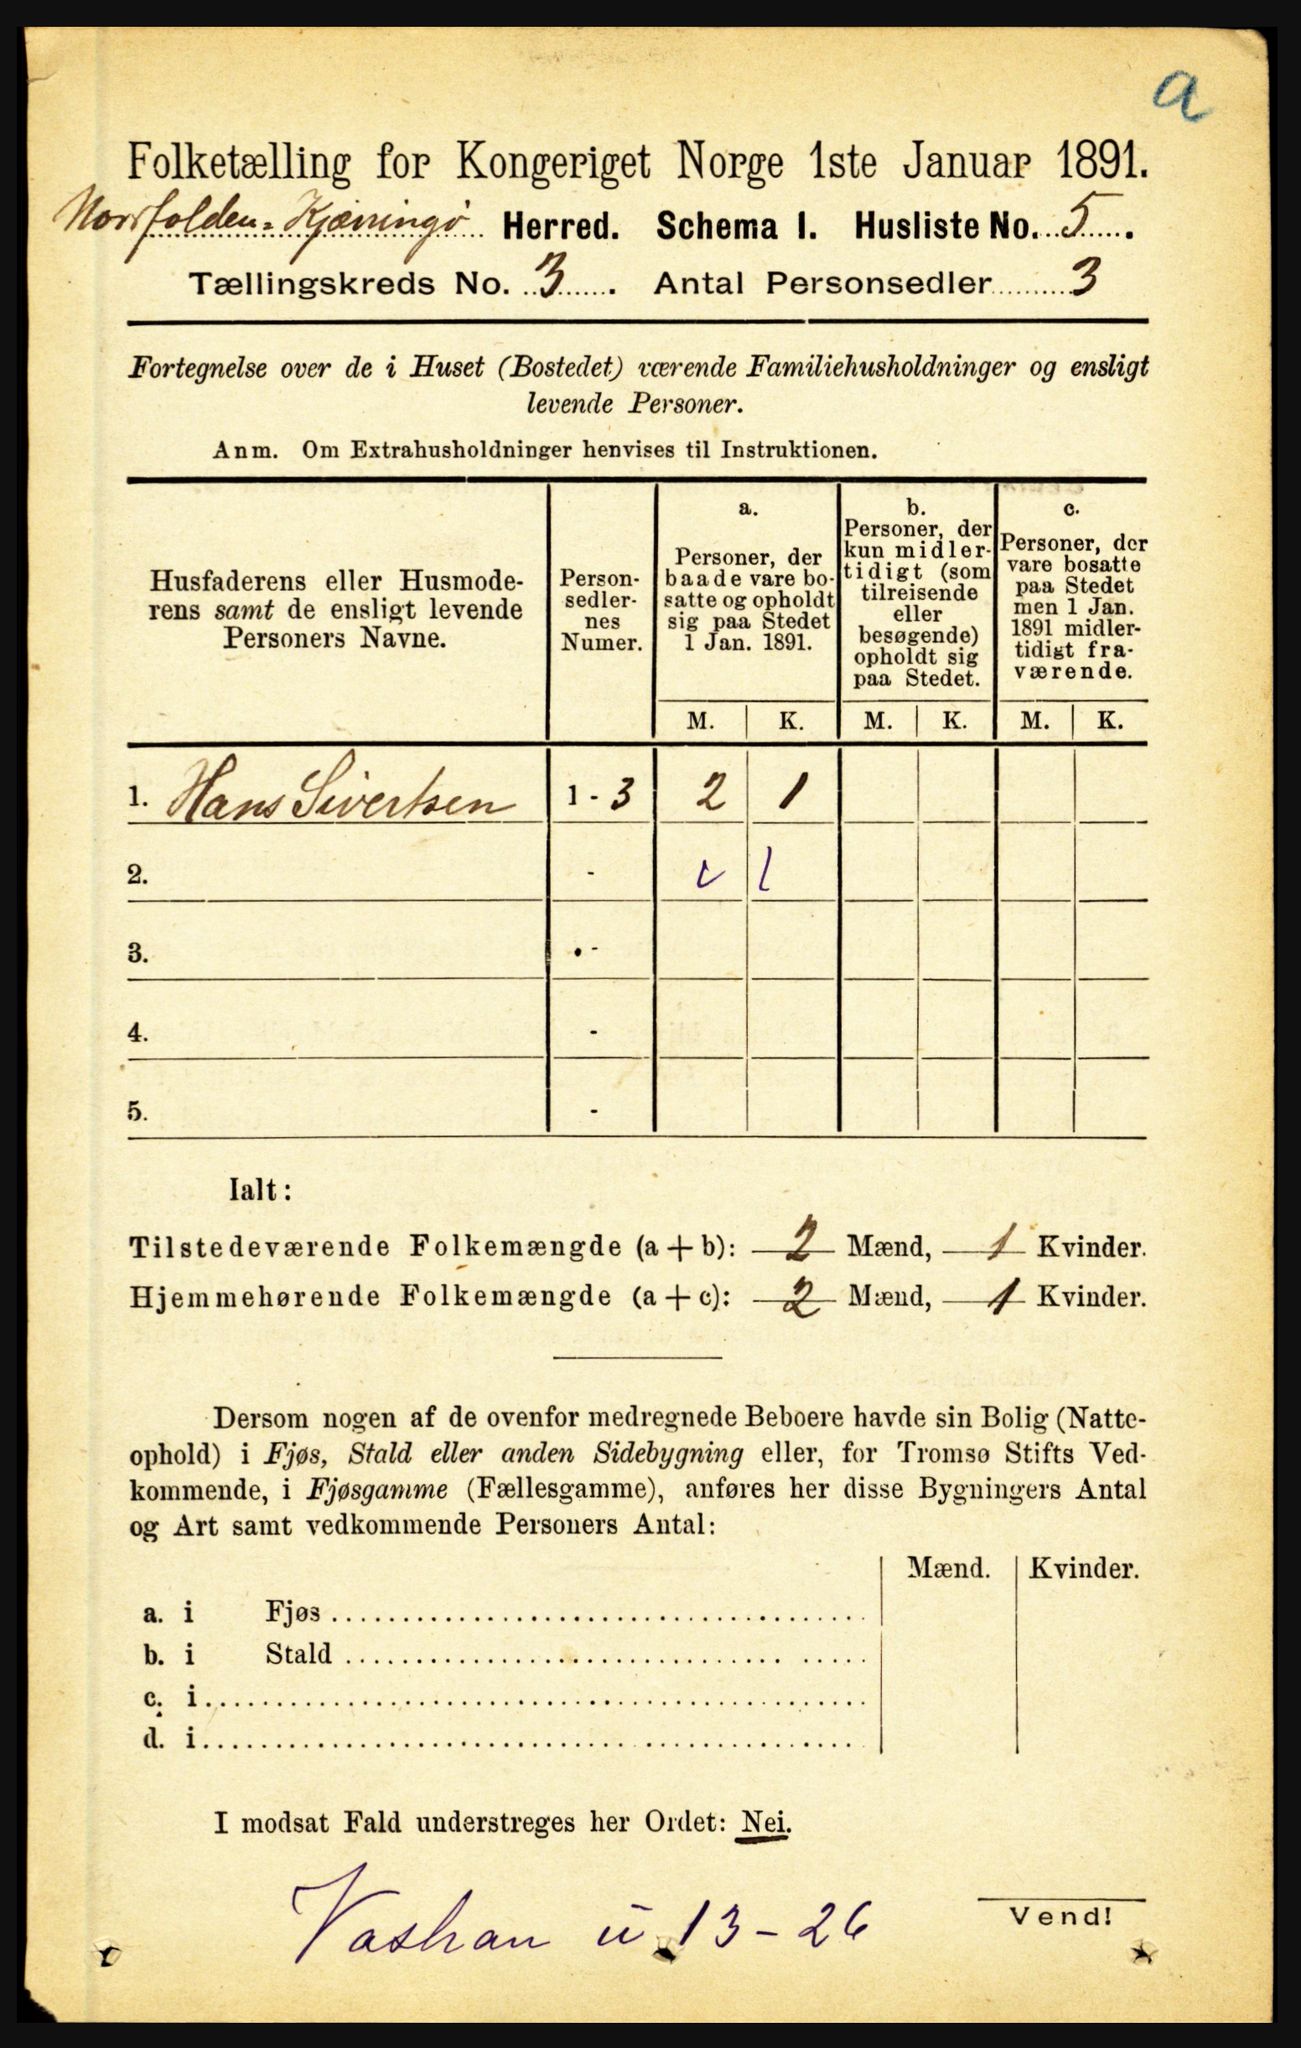 a
Folketælling for Kongeriget Norge 1ste Januar 1891.
Norrfolden-Kjærringø Herred. Schema I. Husliste No. 5.
Tællingskreds No. 3. Antal Personsedler 3
Fortegnelse over de i Huset (Bostedet) værende Familiehusholdninger og ensligt
levende Personer.
Anm. Om Extrahusholdninger henvises til Instruktionen.
Husfaderens eller Husmode-
rens samt de ensligt levende
Personers Navne.
Person-
sedler-
nes
Numer.
a.
Personer, der
baade vare bo-
satte og opholdt
sig paa Stedet
1 Jan. 1891.
b.
Personer, der
kun midler-
tidigt (som
tilreisende
eller
besøgende)
opholdt sig
paa Stedet.
c.
Personer, der
vare bosatte
paa Stedet
men 1 Jan.
1891 midler-
tidigt fra-
værende.
M. K. M. K. M. K.
1. Hans Sivertsen 1 - 3 2 1
2. -
3. -
4. -
5. -
Ialt:
Tilstedeværende Folkemængde (a + b): 2 Mænd, 1 Kvinder.
Hjemmehørende Folkemængde (a + c): 2 Mænd, 1 Kvinder.
Dersom nogen af de ovenfor medregnede Beboere havde sin Bolig (Natte-
ophold) i Fjøs, Stald eller anden Sidebygning eller, for Tromsø Stifts Ved-
kommende, i Fjøsgamme (Fællesgamme), anføres her disse Bygningers Antal
og Art samt vedkommende Personers Antal:
Mænd. Kvinder.
a. i Fjøs
b. i Stald
c. i
d. i
I modsat Fald understreges her Ordet: Nei.
13-26
Vend!